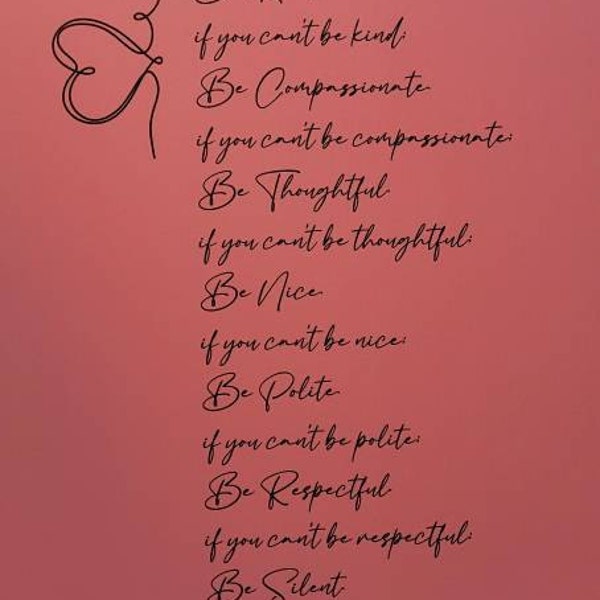 if you can't be kind;
Be Compassionate.
if you can't be compassionate;
Be Thoughtful.
if you can't be thoughtful;
Be Nice.
if you can't be nice;
Be Polite.
if you can't be polite;
Be Respectful.
if you can't be respectful;
Be Silent.